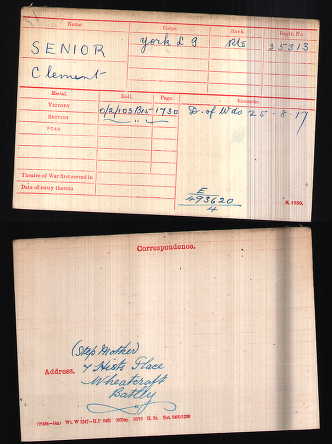 Name. Corps. Rank. Regtl. No.
SENIOR York & L Pte 25313
Clement
Medal. Roll. Page. Remarks.
VICTORY O/2/103B15 1730 D. of Wds 25-8-17
BRITISH " "
STAR
Theatre of War first served in
Date of entry therein
E
493620
4
K. 1380.
Correspondence.
(Step Mother)
Address. 7 Place
Wheatcroft
Batley